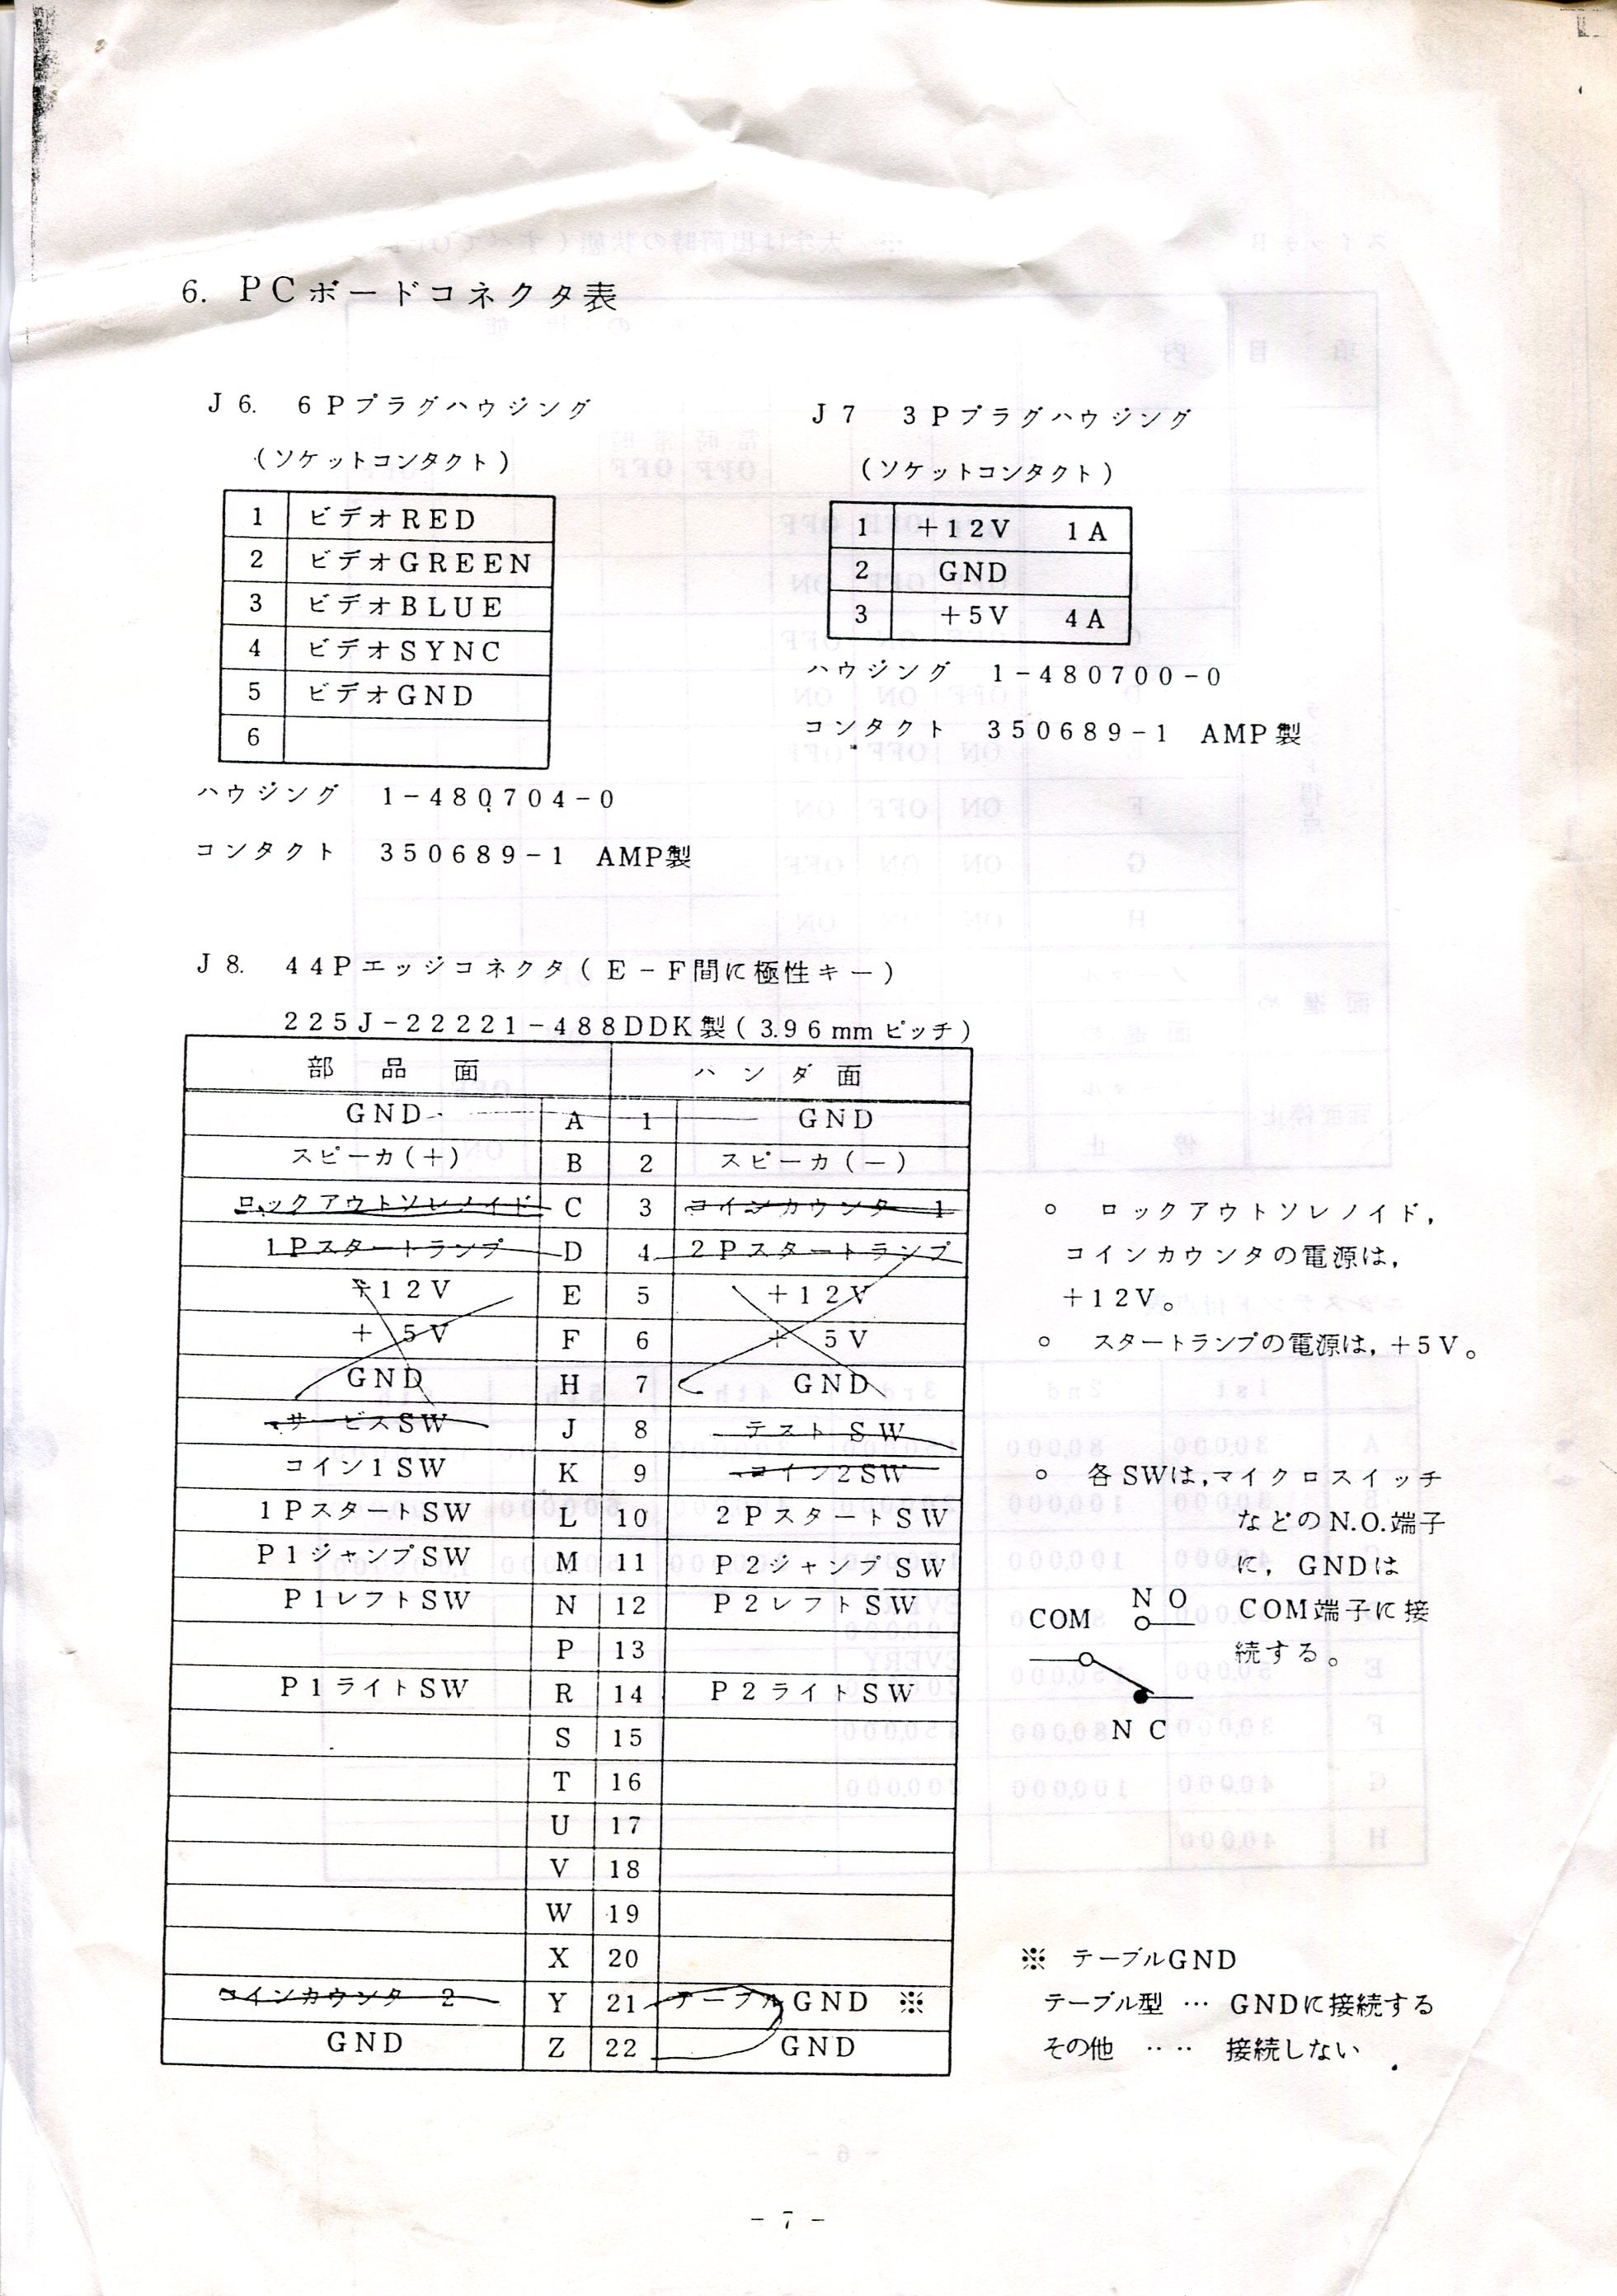 6. PCボードコネクタ表
J6. 6Pプラグハウジング
(ソケットコンタクト)
1 ビデオRED
2 ビデオGREEN
3 ビデオBLUE
4 ビデオSYNC
5 ビデオGND
6
ハウジング 1-480704-0
コンタクト 350689-1 AMP製
J7 3Pプラグハウジング
(ソケットコンタクト)
1 +12V 1A
2 GND
3 +5V 4A
ハウジング 1-480700-0
コンタクト 350689-1 AMP製
J8. 44Pエッジコネクタ(E-F間に極性キー)
225J-22221-488DDK製(3.96mmピッチ)
部品面 ハンダ面
GND A 1 GND
スピーカ(+) B 2 スピーカ(-)
ロックアウトソレノイド C 3 コインカウンター1
1Pスタートランプ D 4 2Pスタートランプ
+12V E 5 +12V
+5V F 6 +5V
GND H 7 GND
サービスSW J 8 テストSW
コイン1SW K 9 コイン2SW
1PスタートSW L 10 2PスタートSW
P1ジャンプSW M 11 P2ジャンプSW
P1レフトSW N 12 P2レフトSW
P 13
P1ライトSW R 14 P2ライトSW
S 15
T 16
U 17
V 18
W 19
X 20
コインカウンター2 Y 21 テーブルGND ※
GND Z 22 GND
○ ロックアウトソレノイド,
コインカウンタの電源は,
+12V。
○ スタートランプの電源は,+5V。
○ 各SWは,マイクロスイッチ
などのN.O.端子
に, GNDは
COM端子に接
続する。
NO
COM
NC
※ テーブルGND
テーブル型 … GNDに接続する
その他 ‥‥ 接続しない
-7-